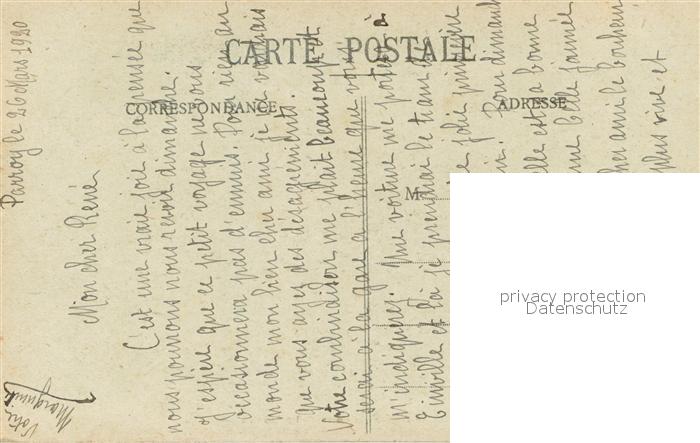 Parroy le 26 Mars 1920
Mon cher René
C'est une vraie joie à la pensée que
nous pourrons nous revoir dimanche.
J'espère que ce petit voyage ne vous
occasionnera pas d'ennuis. Pour rien au
monde mon bien cher ami je ne voudrais
que vous ayez des désagréments.
Votre combinaison me plait beaucoup et
serai à la gare à l'heure que vous
m'indiquerez. Une voiture me portera à
Einville et là je prendrai le tram
jolie
Pour dimanche
elle est à bonne
une belle journée
cher ami le bonheur
plus vive et
Votre
CARTE POSTALE
CORRESPONDANCE
ADRESSE
M
privacy protection
Datenschutz